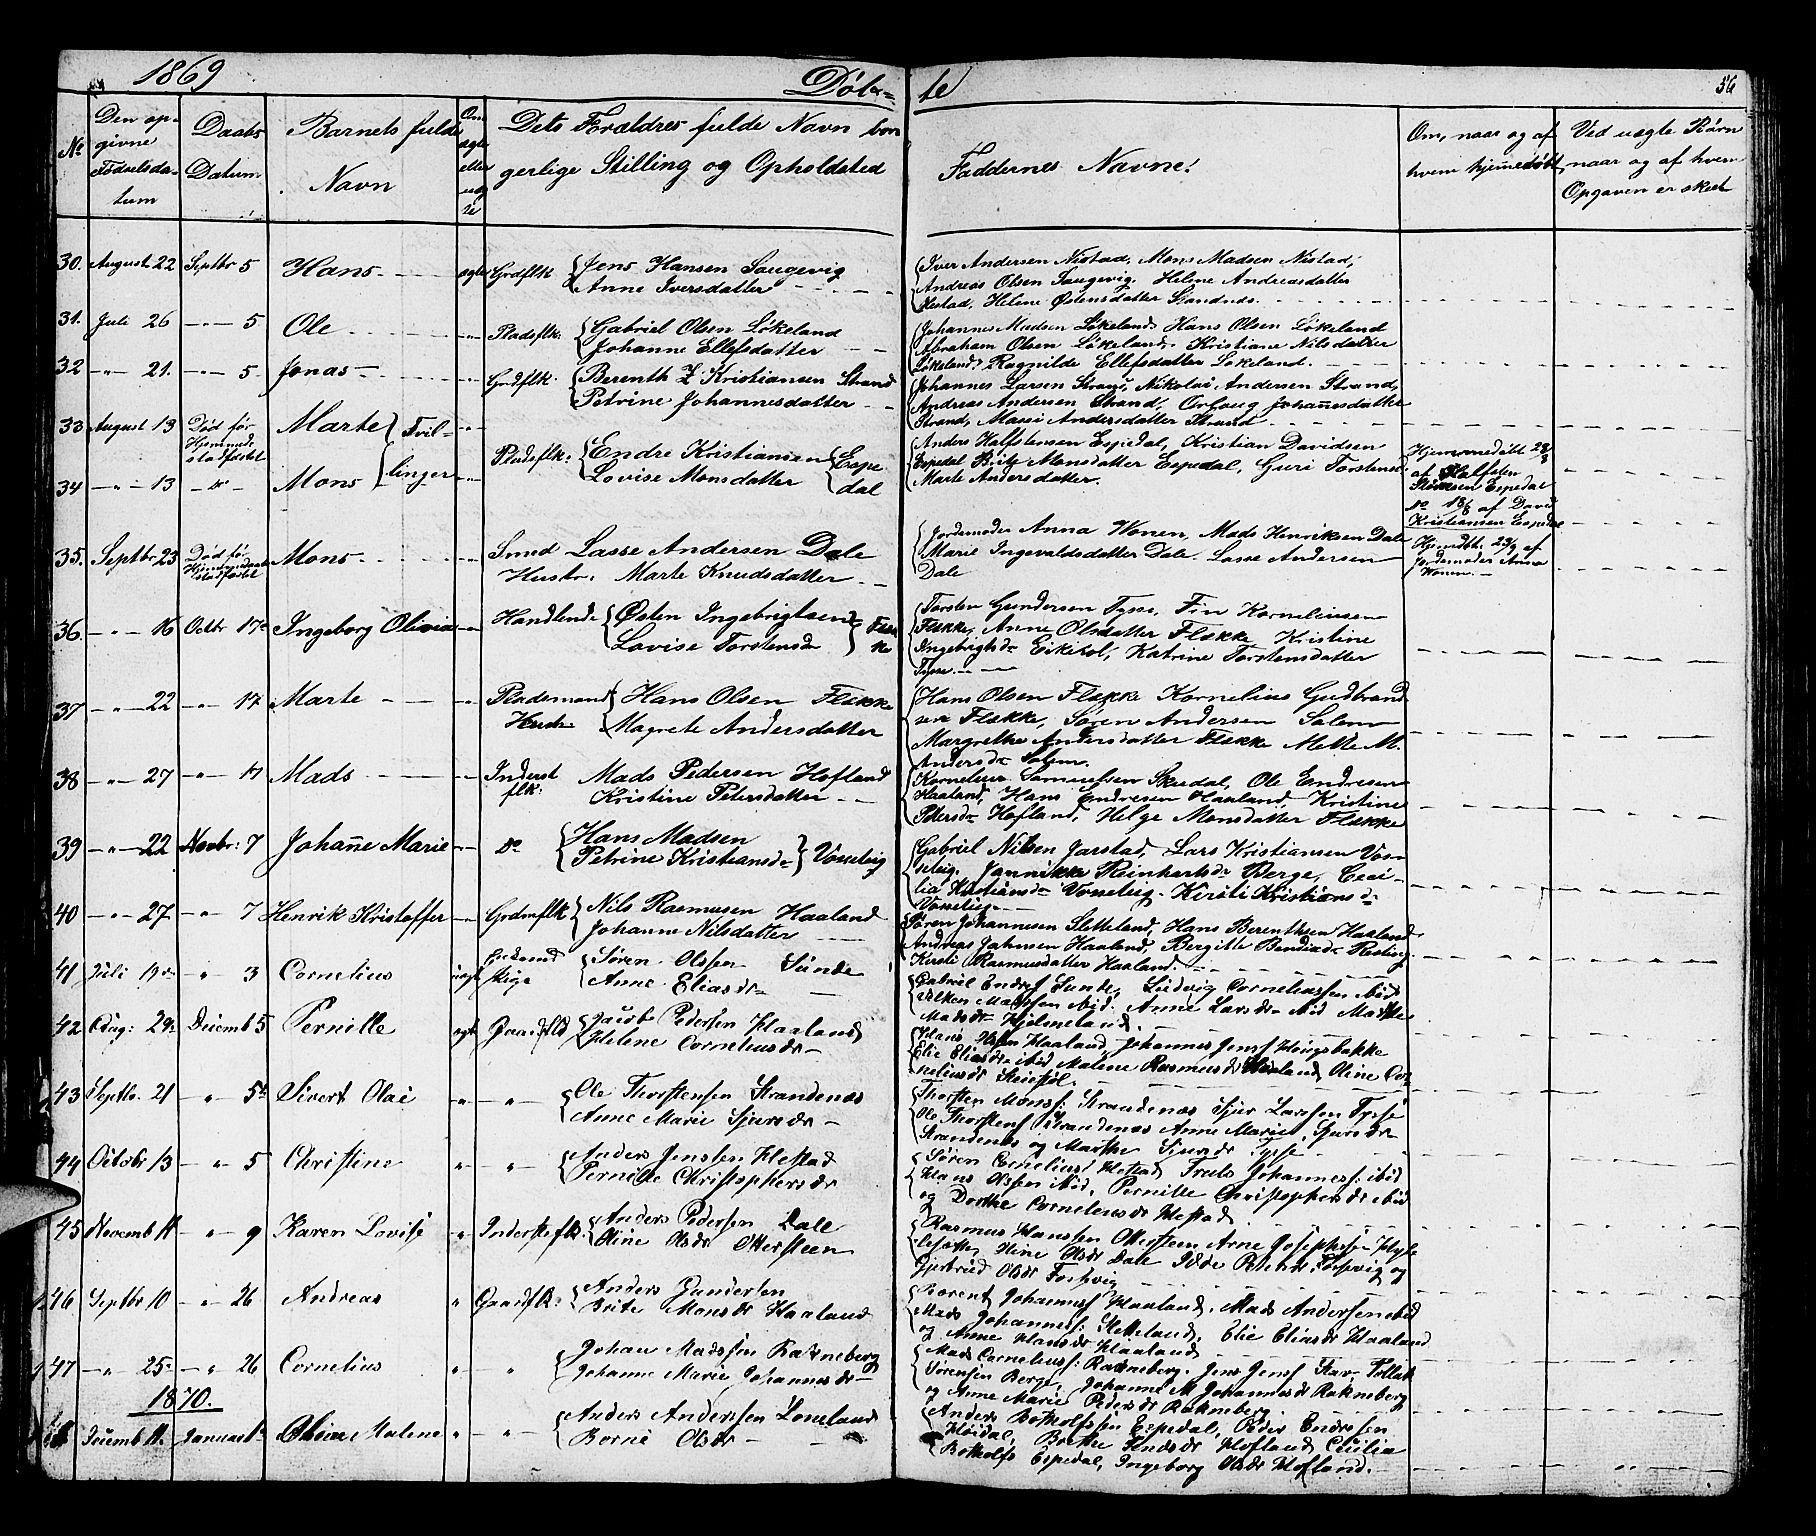 1869
Døb=
te
56
No
Den op-
givne
Fødselsda-
tum
Daabs
Datum
Barnets fulde
Navn
Om
ægte
eller
uæg
te
Dets Forældres fulde Navn bor
gerlige Stilling og Opholdsted
Faddernes Navne.
Om, naar og af
hvem hjemmedøbt
Ved uægte Børn
naar og af hvem
Opgaven er skeet
30. August 22 Septbr 5 Hans ægte Grdflk. Jens Hansen Saugevig
Anne Iversdatter
Iver Andersen Nestad, Mons Madsen Nestad,
Andreas Olsen Saugevig. Helene Andreasdatter
Nestad, Helene Østensdatter Sandnes
31. Juli 26 -"- 5 Ole -"- Pladsflk. Gabriel Olsen Løkeland
Johanne Ellefsdatter
Johannes Madsen Løkeland, Hans Olsen Løkeland
Abraham Olsen Løkeland, Kristiane Nilsdatter
Løkeland, Ragnilde Ellefsdatter Løkeland.
32 -"- 21. -"- 5. Jonas -"- Grdflk. Berenth Z Kristiansen Strand
Petrine Johannesdatter
Johannes Larsen Strand, Nikolai Andersen Strand,
Andreas Andersen Strand, Johannesdatter
Strand, Mari Andersdatter Strand
33 August 13 Død før
Hjemmed.
stadfæstet Marte Tvil-
34 -"- 13 -do- Mons linger Pladsflk. Endre Kristiansen Espe
Lovise Monsdatter dal
Anders Halfstensen Espedal, Kristian Davidsen
Espedal Monsdatter Espedal, Guri Torstensd.
Marte Andersdatter.
Hjemmedøbt
af Halsten
Espedal
do 18/8 af David
Kristiansen Espedal
35. Septbr 23 Død før
stadfæstet Mons Smed Lasse Andersen Dale
Hustr. Marte Knudsdatter
Jordemoder Anna Wonen, Mads Henriksen Dale
Marie Ingevaldsdatter Dale. Lasse Andersen
Dale
Hjemdbt. 23/9 af
Jordemoder Anna
Wonen
36. -"- 16 Octbr 17de Ingeborg Olivia -"- Handlende Østen Ingebrigtsen Flek
Lovise Torstensdr ke
Torsten Gundersen Tysse, Fin Kornelinsen
Flekke, Anne Olsdatter Flekke Kristine
Ingebrigtsdr Eikebøl, Katrine Torstensdatter
Tysse.
37 -"- 22 -"- 17 Marte -"- Pladsmand Hans Olsen Flekke
Hustr. Magrete Andersdatter
Hans Olsen Flekke Kornelius Gudbrand
sen Flekke, Søren Andersen Salem
Margrethe Andersdatter Flekke Mette M.
Andersdr Salem.
38 -"- 27 -"- 17 Mads -"- Inderst
flk. Mads Pedersen Hofland
Kristine Petersdatter
Kornelius Samuelsen Skedal, Ole Endresen
Haaland, Hans Endresen Haaland, Kristine
Petersdr Hofland, Helge Monsdatter Flekke
39 -"- 22 Novbr: 7 Johanne Marie -"- do Hans Madsen
Petrine Kristiansdr Vonelvig
Gabriel Nilsen Jarstad, Lars Kristiansen Von-
elvig. Jannikke Reinhertsdr Berge, Ceci-
lia Kristiansdr Vonelvig. Kirsti Kristiansdr
Vonelvig
40 -"- 27 -"- 7 Henrik Kristoffer -"- Grdmflk Nils Rasmusen Haaland
Johanne Nilsdatter
Søren Johannesen Sletteland, Hans Berenthsen Haaland
Andreas Jahnsen Haaland, Bergitte
Kirsti Rasmusdatter Haaland.
41 Juli 19de " 3 Cornelius uægt Søren Olssen Sunde
Anne Eliasdr
Gabriel Endresf Sunde, Ludvig Corneliussen ibid
Madssen ibid. Anne Larsdr ibid Marthe
Madsdr Hjelmeland.
42 Aug: 29de Decemb 5 Pernille ægt. Gaardflk Jacob Pedersen Haaland
Helene Corneliusdr
Hans Olssen Haaland Johannes Jensf Høngsbakke
Elie Eliasdr ibid Malene Rasmusdr Haaland, Oline Cor-
neliusdr
43 Septbr. 21 " 5te Sivert Olai " " Ole Thorstensen Strandenæs
Anne Marie Sjursdr
Thorsten Monsf: Strandenæs Sjur Larssen Tysse
Ole Thorstensf Strandenæs Anne Marie Sjursdr
Strandenæs og Marthe Sjursdr Tysse
44 Octobr 13 -"- 5 Christine " " Anders Jenssen Hestad
Pernille Christophersdr
Søren Corneliusf Hestad Truls Johannesf: ibid
Hans Olssen ibid, Pernille Christophersdr ibid
og Dorthe Corneliusdr Hestad
45 Novemb 11 -"- 9 Karen Lovise " Indersteflk. Anders Pedersen Dale
Oline Olsdr Ottersteen
Rasmus Hanssen Ottersteen Arne Josephsen
Oline Olsdr Dale og
Olsdr
46 Septbr 10 -"- 26 Andreas " Gaardflk: Anders Gundersen
Brite Monsdr Haaland
Berent Johannesf Haaland, Mads Andersen ibid
Mads Johannesf: Sletteland, Elie Eliasdr Haaland
og Anne Hansdr Haaland
47 -"- 25de -"- 26 Cornelius " " Johan Madssen Rakneberg
Johanne Marie Johannesdr
Mads Corneliusf: Rakneberg, Jens Jensf
Sørensen Berge, Johanne M Johannesdr Rakneberg
og Anne Marie Pedersdr Rakneberg
1870.
Decemb 11. Januar Malene " " Anders Anderssen Loneland
Borni Olsdr
Anders Botholfssen Espedal, Peder Endressen
Høidal, Hofland, Cecilia
Botholfs Espedal, Ingeborg Olsdr Hofland.